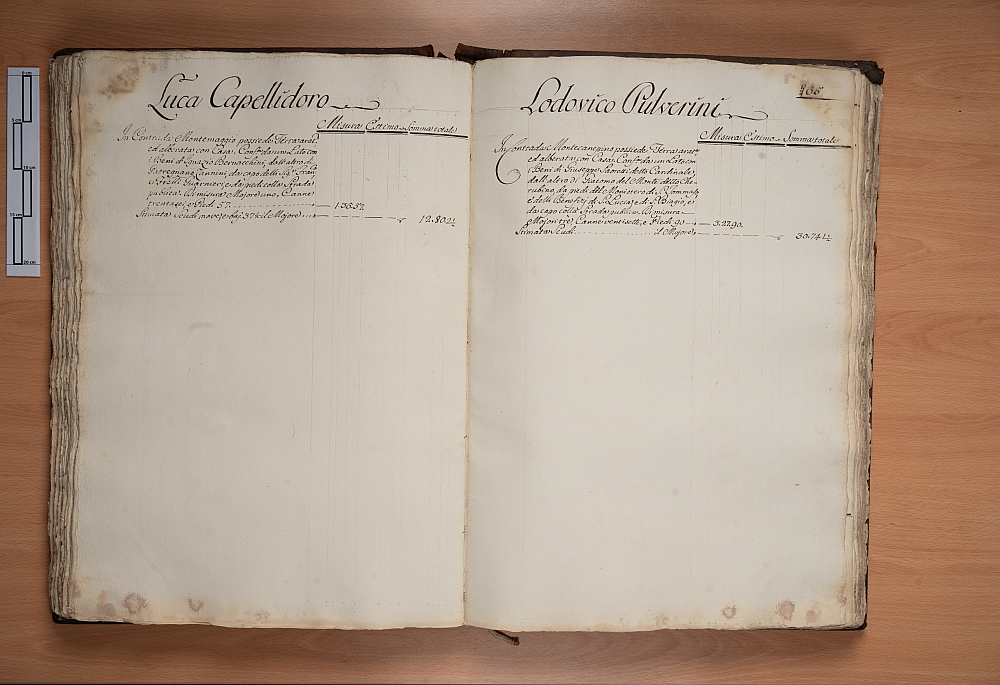 Luca Capellidoro
Misura Estimo Somma totale
In Contrada Montemaggio possiede Terra arat.
ed alberata con Casa, Conf. da un Lato con
i Beni d'Ignazio Bernacchini, dall'altro di
Peregrino Nannini, da capo delli Sig.ri Fran.
e da piedi colla Strada
publica. Di misura Mojore uno, Canne
e Piedi 57
Stimata Scudi nove, e baj. 37½ il Mojore
12.80.2½
Lodovico Pulverini
Misura Estimo Somma totale
In Contrada Montecanepino possiede Terra arat.
ed alberata con Casa, Conf. da un Lato con
i Beni di Giuseppe Saoretti detto Cardinale,
dall'altro di Giacomo del Monte detto Che-
rubino, da piedi del Monistero di S. Tommaso,
e delli Benefizj di S. Lucia, e di S. Biagio, e
da capo colla Strada publica. Di misura
Mojori tre, Canne ventisette, e Piedi 90 3.27.90.
Stimata Scudi il Mojore